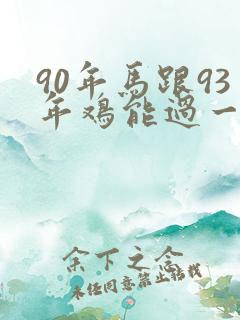 90年馬跟93
年鳮能過一
余下之念
未任同意禁止转载